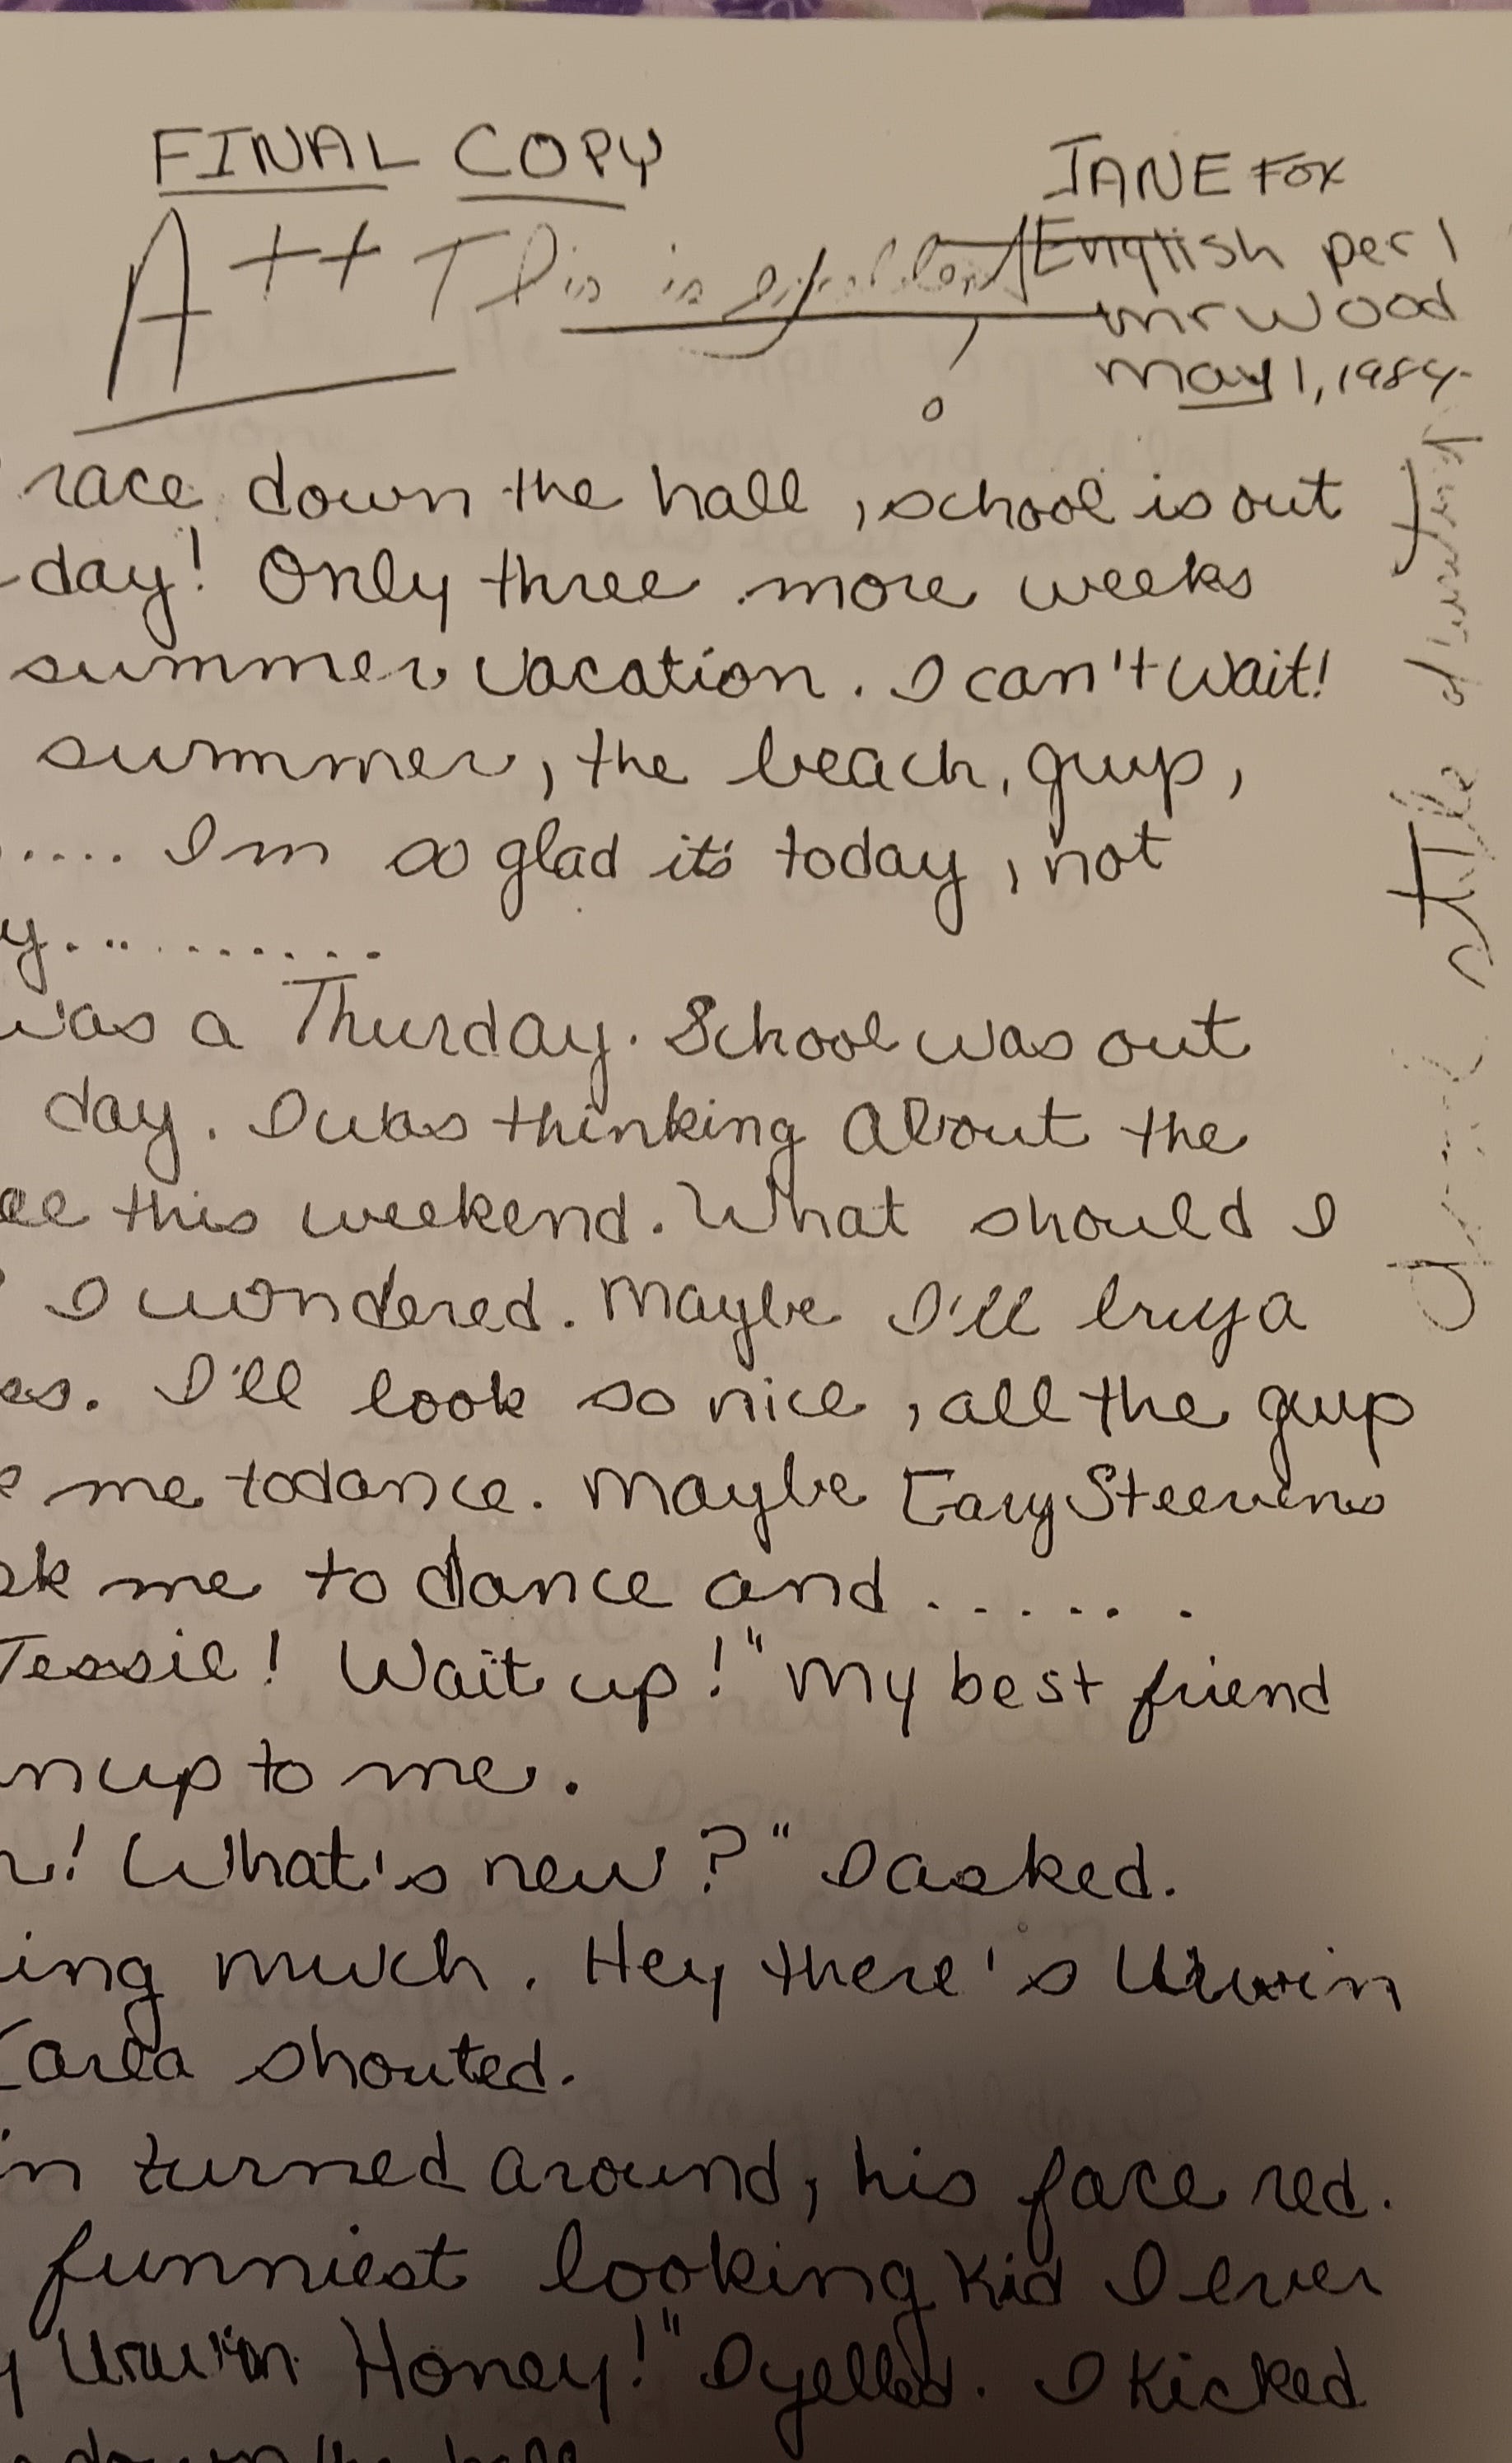 FINAL COPY
JANE FOX
A++ This is excellent!
English per 1
mr wood
may 1, 1984.
race down the hall, school is out
day! Only three more weeks
summer vacation. I can't wait!
summer, the beach, guys,
..... I'm so glad it's today, not
y...........
was a Thurday. School was out
day. I was thinking about the
this weekend. What should I
I wondered. Maybe I'll buy a
I'll look so nice, all the guys
me to dance. Maybe Gary Steevens
me to dance and......
Tessie! Wait up!" My best friend
up to me.
What's new?" I asked.
ing much. Hey there's Urwin
Carla shouted.
turned around, his face red.
funniest looking kid I ever
Urwin Honey!" I yelled. I kicked
down the hall